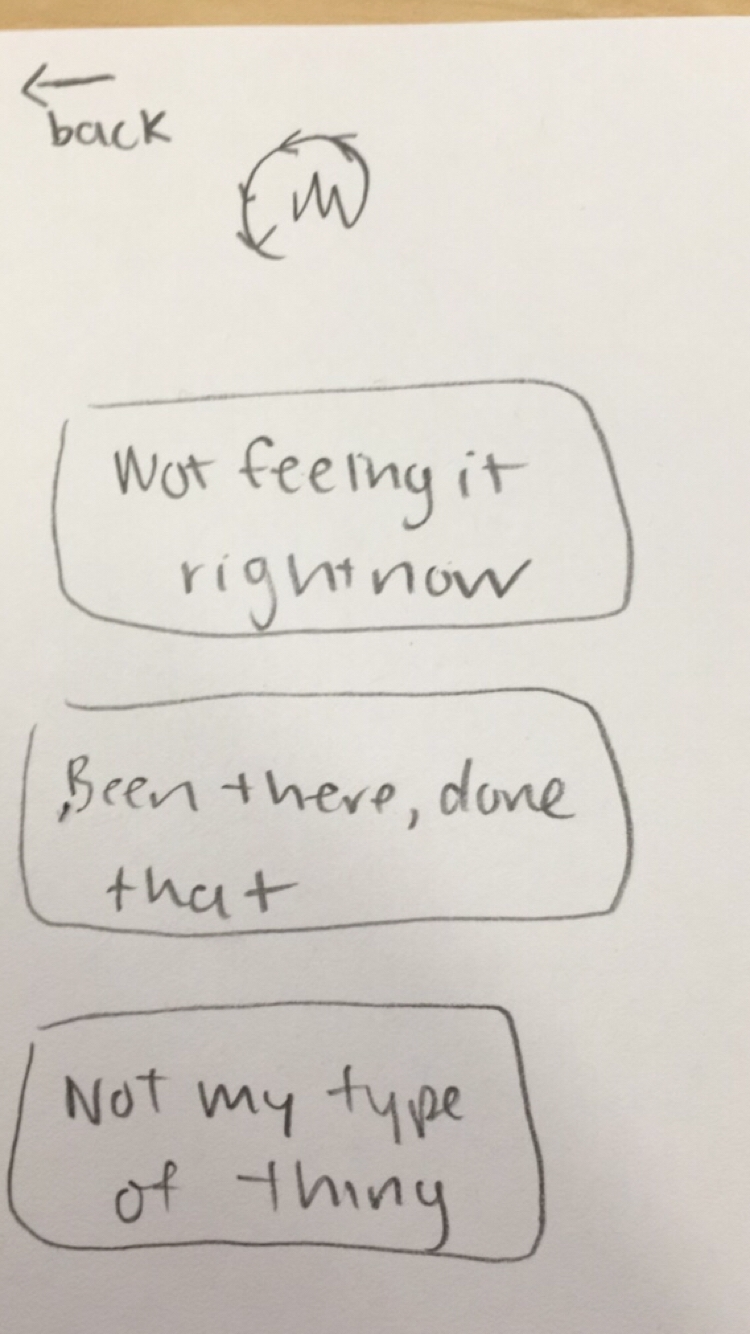 back
M
Not feeling it
right now
Been there, done
that
Not my type
of thing